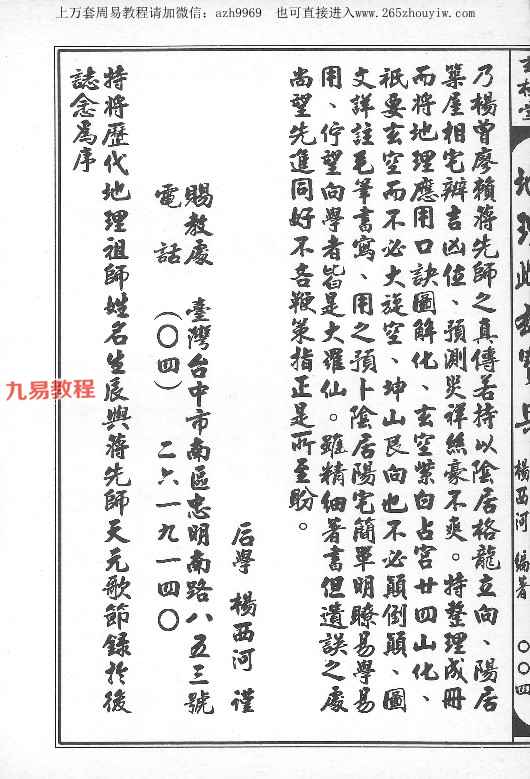 上万套周易教程请加微信：azh9969　也可直接进入www.265zhouyiw.com
楊西河 編著
〇〇四
乃楊曾廖賴蔣先師之真傳若持以陰居格龍立向、陽居
築屋相宅辨吉凶位、預測災祥絲豪不爽。特整理成冊
而將地理應用口訣圖解化、玄空紫白占宮廿四山化、
祇要玄空而不必大旋空、坤山艮向也不必顛倒顛、圖
文詳註毛筆書寫、用之預卜陰居陽宅簡單明瞭易學易
用、佇望向學者皆是大羅仙。雖精細著書但遺誤之處
尚望先進同好不吝鞭策指正是所至盼。
后學 楊西河 謹
賜教處 臺灣台中市南區忠明南路八五三號
電話 （〇四） 二六一九一四〇
持將歷代地理祖師姓名生辰與蔣先師天元歌節錄於後
誌念為序
九易教程